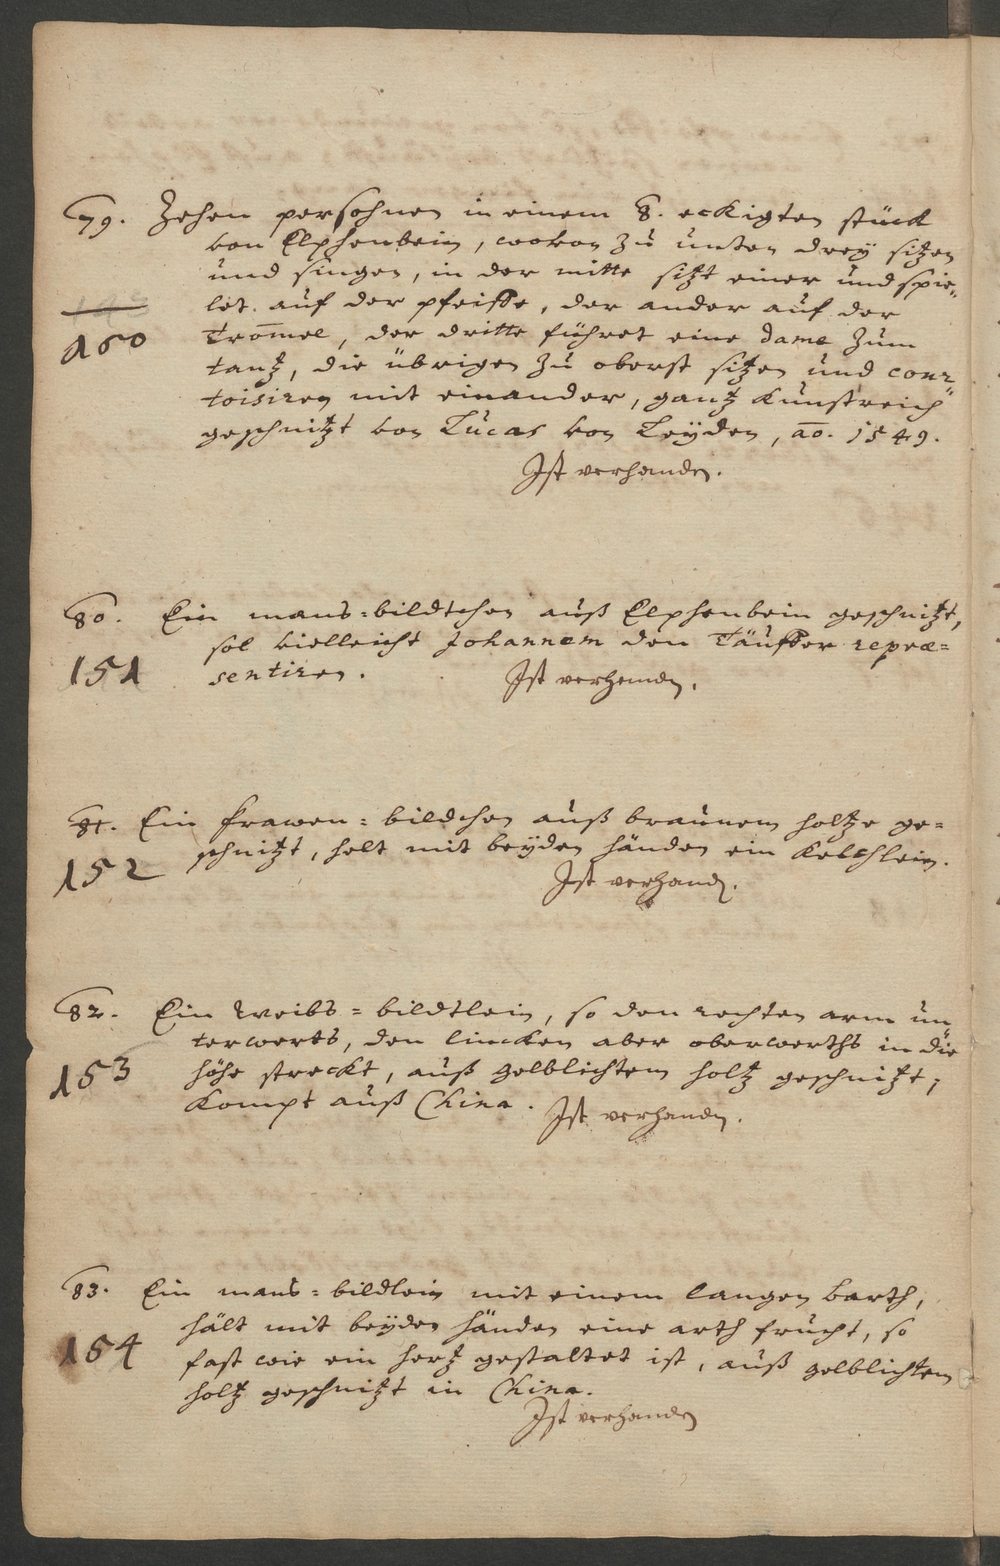 79. Zehen persohnen in einem 8. eckigten stück
von Elphenbein, wovon zu unten dreÿ sitzen
und singen, in der mitte sitzt einer und spie„
let auf der pfeiffe, der ander auf der
150
Trom̄el, der dritte führet eine Dame zum
tantz, die übrigen zu oberst sitzen und cour„
toisiren mit einander, gantz kunstreich
geschnitzt von Lucas von Leÿden, aō. 1549.
Ist verhanden.
80. Ein mans=bildtchen auß Elphenbein geschnitzt,
sol vielleicht Johannem den Täuffer repræ=
151 sentiren. Ist verhanden.
81. Ein frawen=bildchen auß braunem holtze ge=
schnitzt, helt mit beÿden händen ein Kelchlein.
152
Ist verhand.
82. Ein Weibs=bildtlein, so den rechten arm un„
terwerts, den lincken aber oberwerths in die
153 höhe streckt, auß gelblichtem holtz geschnitzt,
kompt auß China. Ist verhanden.
83. Ein mans=bildlein mit einem langen barth,
hält mit beÿden händen eine arth frucht, so
154 fast wie ein hertz gestaltet ist, auß gelblichtem
holtz geschnitzt in China.
Ist verhanden